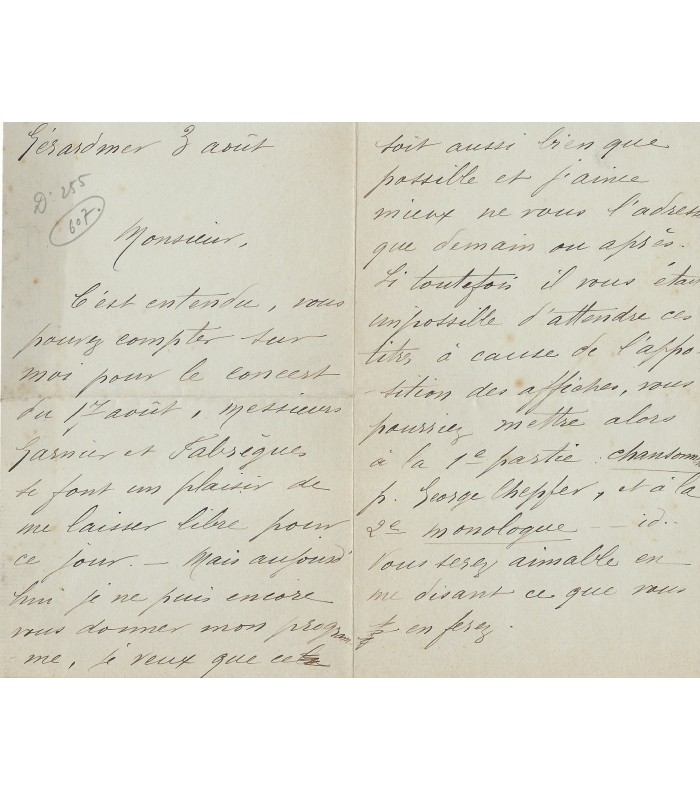 Gérardmer 3 août
D. 255
607.
Monsieur,
C'est entendu, vous
pouvez compter sur
moi pour le concert
du 17 août, Messieurs
Garnier et Fabrègues
se font un plaisir de
me laisser libre pour
ce jour. — Mais aujourd
hui je ne puis encore
vous donner mon program
me, je veux que cela
soit aussi bien que
possible et j'aime
mieux ne vous l'adress
que demain ou après.
Si toutefois il vous était
impossible d'attendre ces
titres à cause de l'appo
-sition des affiches, vous
pourriez mettre alors
à la 1e partie : chansons
p. George Chepfer, et à la
2e monologue -- id..
Vous serez aimable en
me disant ce que vous
en ferez.